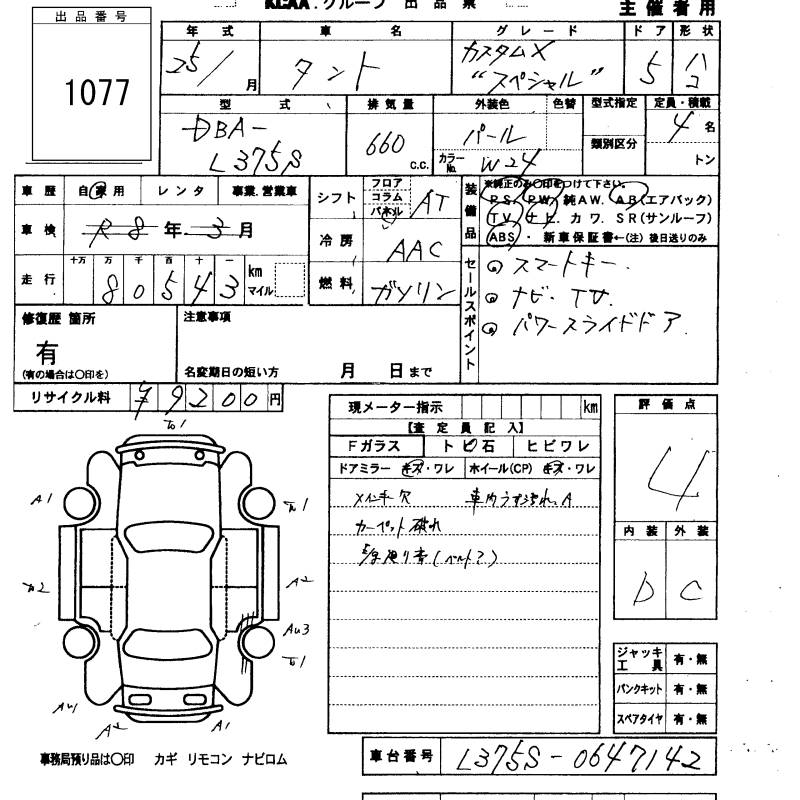 KCAA.グループ 出品票
主催者用
出品番号
1077
年式 車名 グレード ドア 形状
25/ 月 タント カスタムX "スペシャル" 5 ハコ
型式 排気量 外装色 色替 型式指定 定員・積載
DBA-
L375S
660 c.c.
パール
カラーNo. W24
類別区分
4 名
トン
車歴 自家用 レンタ 事業.営業車
車検 R8年 3月
走行 十万 万 千 百 十 一
80543 km マイル
シフト フロア コラム パネル AT
冷房 AAC
燃料 ガソリン
装備品
※純正のみ〇印をつけて下さい。
P.S. P.W. 純AW. AB(エアバック)
TV. ナビ. カワ. SR(サンルーフ)
ABS ・ 新車保証書←(注) 後日送りのみ
セールスポイント
スマートキー.
ナビ. TV.
パワースライドドア.
修復歴 箇所
有
(有の場合は〇印を)
注意事項
名変期日の短い方 月 日まで
リサイクル料 ¥9200円
現メーター指示 km
【査定員記入】
Fガラス トビ石 ヒビワレ
ドアミラー キズ・ワレ ホイール(CP) キズ・ワレ
欠 車内うすよごれ.A
カーペット破れ
(ベルト?)
評価点
4
内装 外装
D C
A1
A2
AU3
AU1
A2
A1
ジャッキ工具 有・無
パンクキット 有・無
スペアタイヤ 有・無
事務局預り品は〇印 カギ リモコン ナビロム
車台番号 L375S-0647142